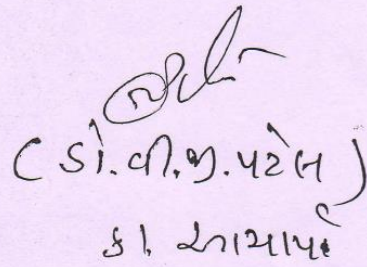 (ડૉ.વી.જી.પટેલ)
કા. આચાર્ય